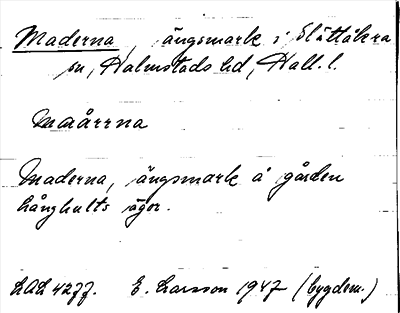 Maderna, ängsmark i Slättåkra
sn, Halmstads hd, Hall. l.
maårrna
Maderna, ängsmark å gården
Långhults ägor.
LAL 4277. E. Larsson 1947 (bygdem.)